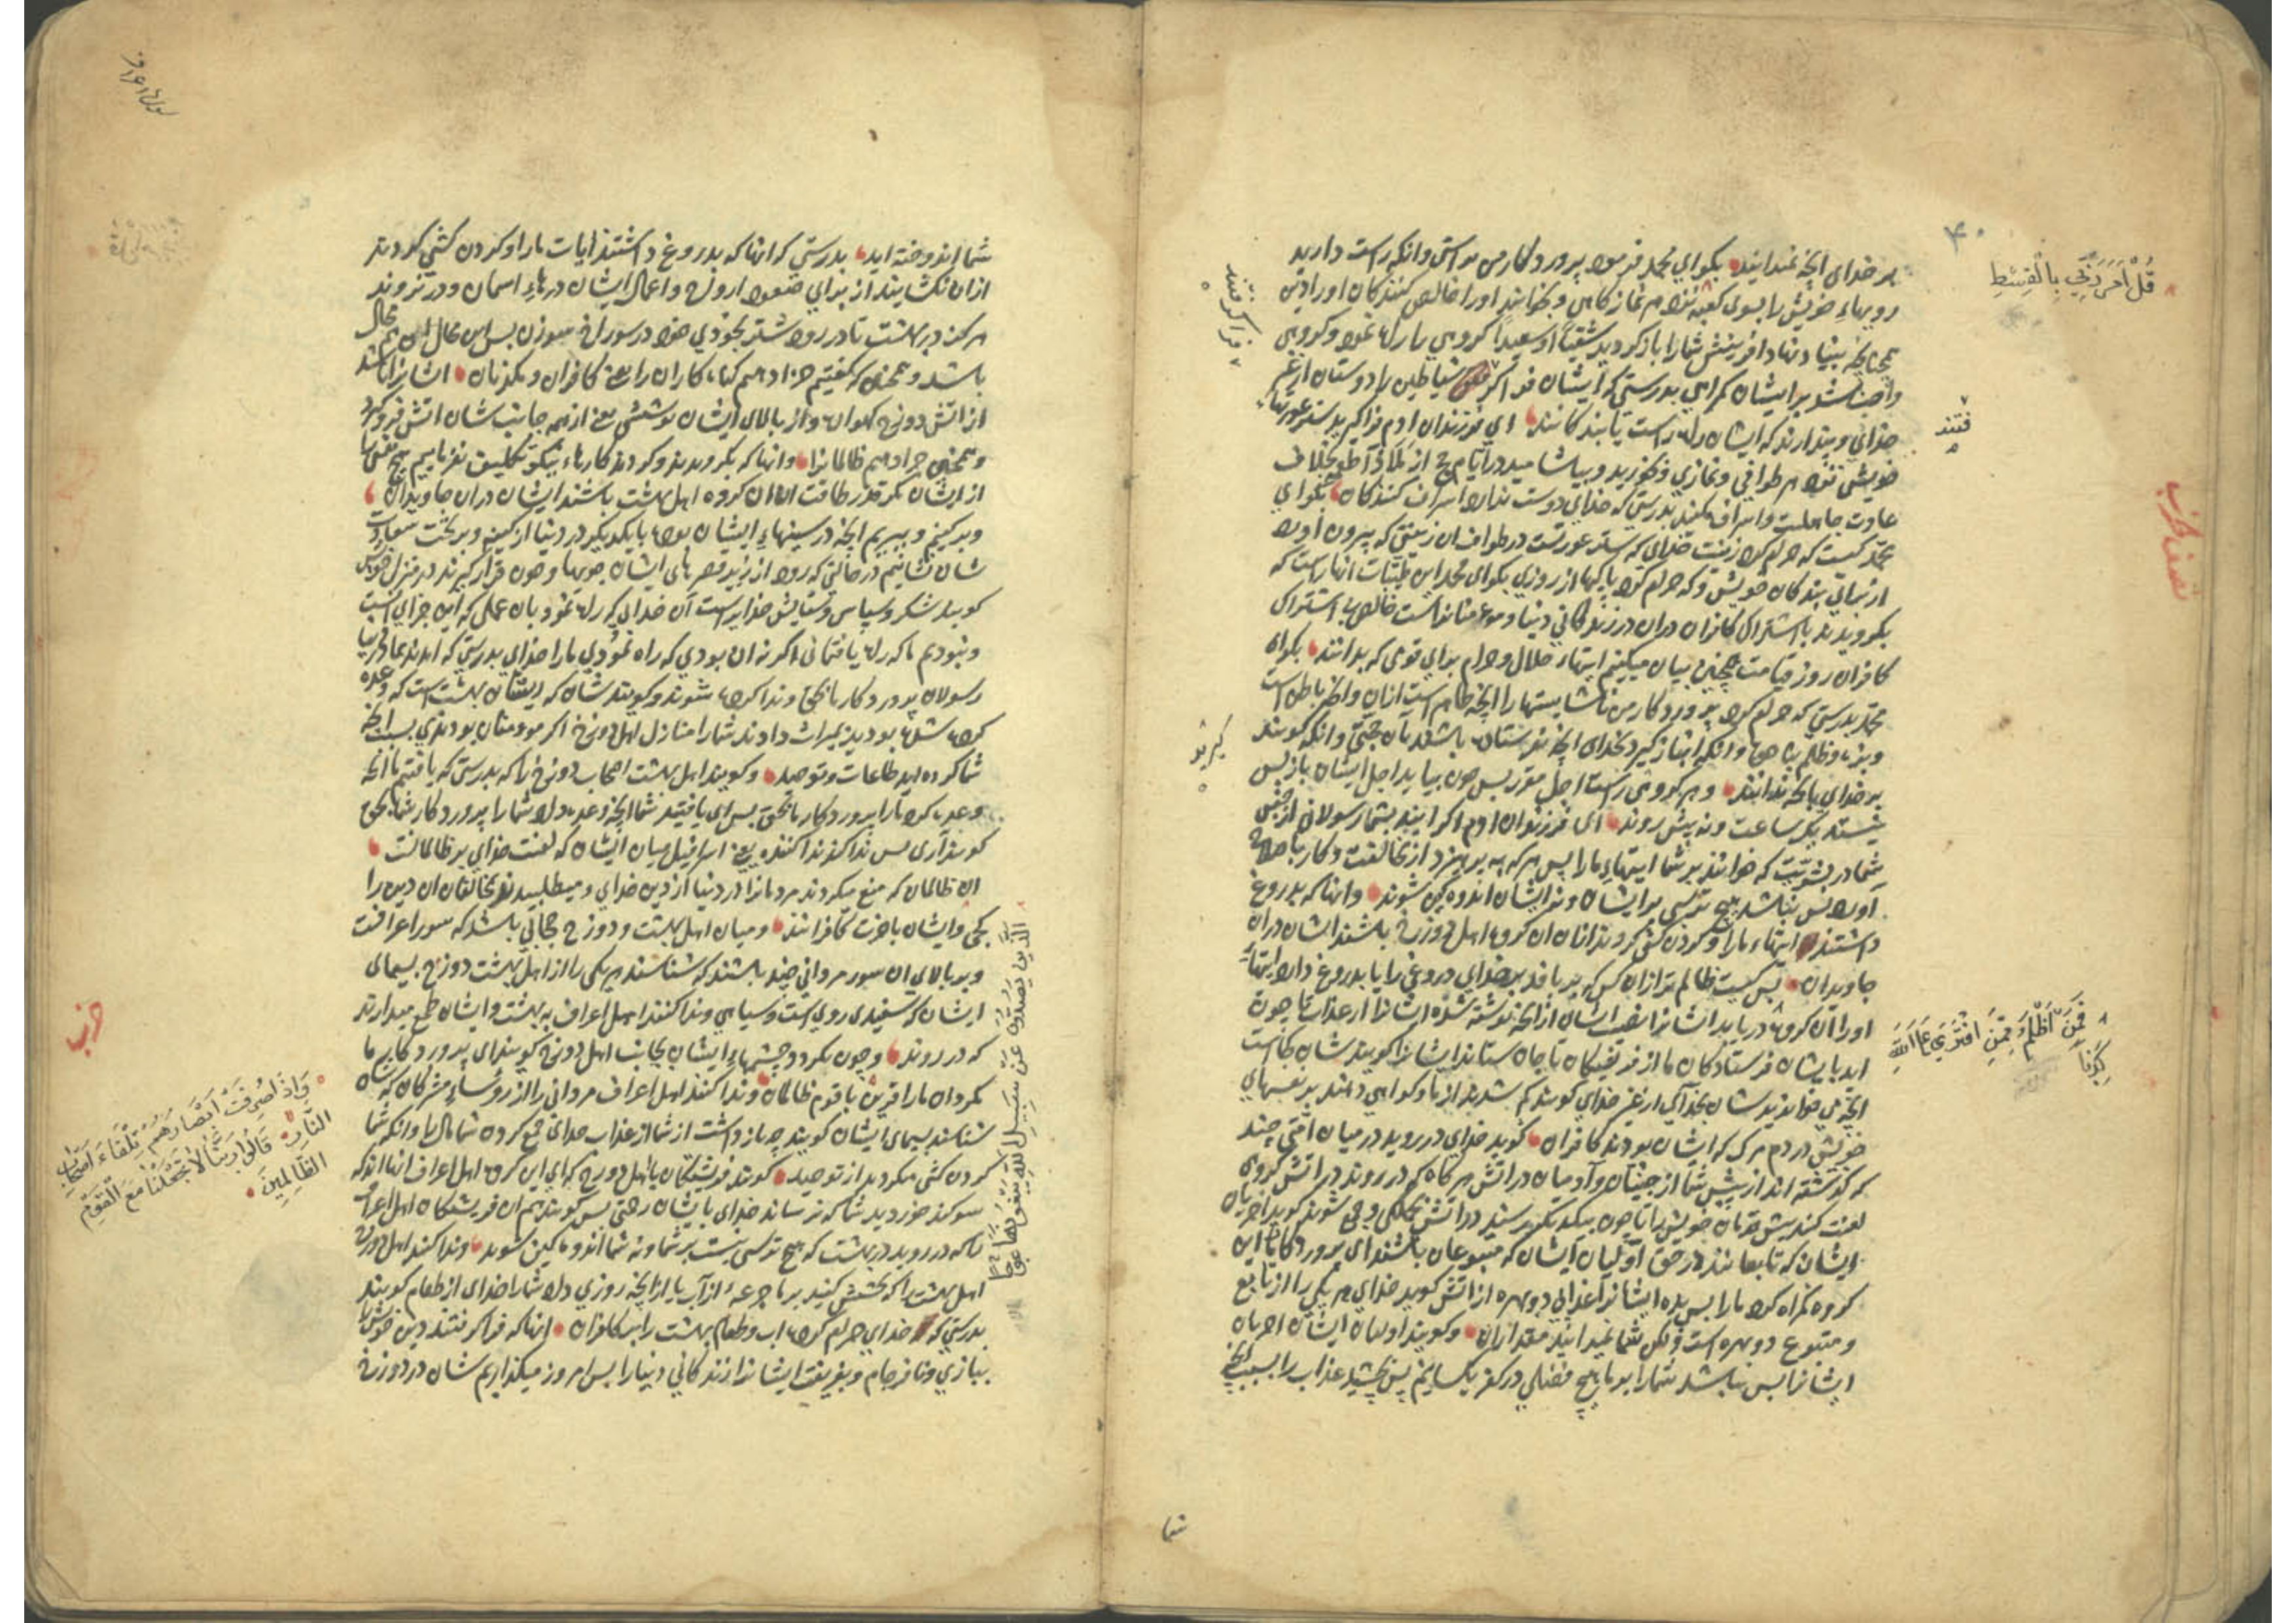 ۴۰
قُلْ اَمَرَ رَبِّي بِالْقِسْطِ
بر خدای انچه نمیدانید بگو ای محمد فرمود پروردگار من براستی و انکه راست دارید
رویهاء خویش را بسوی کعبه نزد هر نمازگاهی و بخوانید او را خالص کنندگان او را دین
همچنانچه بنیاد نهاد افرینش شما را بازگردید شقیاً او سعیداً گروهی را راه نمود و گروهی
واجب شد بر ایشان گمراهی بدرستی که ایشان فراگر شیاطین را دوستان از غیر
خدای و پندارند که ایشان راه راست یابندگانند ای فرزندان ادم فراگیرید ستر عورتهاء
خویش نزد هر طوافی و نمازی و بخورید و بیاشامید در ایام حج از
عادت جاهلیت و اسراف مکنید بدرستی که خدای دوست ندارد اسراف کنندگان بگو ای
محمد کیست که حرام کرد زینت خدای که ستر عورتست در طواف ان زینتی که بیرون اورد
از برای بندگان خویش و که حرام کرد پاکیها از روزی بگو ای محمد این طیبات انها راست که
بگرویدند با اشتراک کافران دران در زندگانی دنیا و مومنانراست خالص بی اشتراک
کافران روز قیامت همچنین بیان میکنیم ایتهاء حلال و حرام برای قومی که بدانند بگو ای
محمد بدرستی که حرام کرد پروردگار من ناشایستها را انچه ظاهر است ازان و انچه باطن است
و بزه و ظلم بناحق و انکه انباز گیرد بخدای انچه نفرستاد باشد بآن حجتی و انکه گویند
بر خدای بانچه ندانند و هر گروهی راست اجل مقرر پس چون بیاید اجل ایشان باز پس
نیستند یک ساعت و نه پیش روند ای فرزندان ادم اگر ایند بشما رسولانی از جنس
شما در بشریت که خوانند بر شما ایتهاء ما را پس هر که بپرهیزد از مخالفت و کار با صلاح
آورد پس نباشد هیچ ترسی بر ایشان و نه ایشان اندوهگین شوند و انها که بدروغ
داشتند ایتهاء ما را و گردن کشی کردند ازان ان گروه اهل دوزخ باشند ایشان دران
جاویدان پس کیست ظالم تر ازان کس که بر بافد بر خدای دروغی را یا بدروغ دارد ایتهاء
او را ان گروه دریابد ایشانرا نصیب ایشان از انچه نوشته شده ایشانرا از عذاب تا چون
اید بایشان فرستادگان ما از فریشتگان تا جان ستانند ایشانرا گویند شان کجاست
انچه می خواندید شان بخدآئی از غیر خدای گویند گم شدند از ما و گواهی دهند بر نفسهای
خویش در دم مرگ که ایشان بودند کافران گوید خدای در روید در میان امتی چند
که گذشته اند از پیش شما از جنیان و آدمیان در اتش هر گاه که در روند در اتش گروهی
لعنت کند بیش قدمان خویش را تا چون بیکدیگر رسند در اتش همگی و جمع شوند گوید اخریان
ایشان که تابعانند در حق آولیان ایشان که متبوعان باشند ای پروردگار ما این
گروه گمراه کرد ما را پس بده ایشانرا عذابی دو بهره از اتش گوید خدای هر یکی را از تابع
و متبوع دو بهره است ولکن شما نمیدانید مقدار ان و گویند اولیان ایشان اخریان
ایشانرا پس نباشد شما را بر ما هیچ فضلی در کفر یکسانیم پس بچشید عذاب را بسبب انچه
فراگرفتند
فتند
گیرند
نصف حزب
فَمَنْ اَظْلَمُ مِمَّنِ افْتَرَى عَلَى اللّٰهِ
كَذِبًا
شما
شما اندوخته اید بدرستی که انها که بدروغ داشتند ایات ما را و گردن کشی کردند
ازان نگشایند از برای صعود ارواح و اعمال ایشان درهاء اسمان و در نروند
هرگز در بهشت تا در رود اشتر بخودی خود در سوراخ سوزن پس این محال ان هم محال
باشد و همچنین که گفتیم جزا دهیم گناه کاران را یعنی کافران و مکذبان ایشانرا باشد
از اتش دوزخ گهواره و از بالاء ایشان پوششی یعنی از همه جانب شان اتش فروگیرد
و همچنین جزا دهیم ظالمانرا و انها که بگرویدند و کردند کارهاء نیکو تکلیف نفرماییم هیچ نفسی را
از ایشان مگر قدر طاقت ان ان گروه اهل بهشت باشند ایشان دران جاویدان
و برکنیم و ببریم انچه در سینهاء ایشان بوده بایکدیگر در دنیا از کینه و بر تخت سعادت
شان نشانیم در حالتی که رود از زیر قصرهای ایشان جویها و چون قرار گیرند در منزل خویش
گویند شکر و سپاس و ستایش خدایراست آن خدایی که راه نمود بان عملی که این جزای انست
و نبودیم ما که راه یافتمانی اگر نه ان بودی که راه نمودی ما را خدای بدرستی که امدند بما
رسولان پروردگار ما بحق و ندا کرده شوند و گویند شان که اینتان بهشت است که وعده
کرده شده بودید بمیراث دادند شما را منازل اهل دوزخ اگر مومنان بودندی بسبب انچه
شما کرده اید طاعات و توحید و گویند اهل بهشت اصحاب دوزخ را که بدرستی که یافتیم ما انچه
وعده کرد ما را پروردگار ما بحق پس ای یافتید شما انچه وعده داد شما را پروردگار شما بحق
گویند آری پس ندا کند ندا کننده یعنی اسرافیل میان ایشان که لعنت خدای بر ظالمانست
ان ظالمان که منع میکردند مردمانرا در دنیا از دین خدای و میطلبیدند مخالفان ان دین را
کجی و ایشان باخرت کافرانند و میان اهل بهشت و دوزخ حجابی باشد که سور اعرافست
و بر بالای ان سور مردانی چند باشند که شناسند هر یکی را از اهل بهشت دوزخ بسیمای
ایشان که سفیدی روی است و سیاهی و ندا کنند اهل اعراف به بهشت و ایشان طمع میدارند
که در روند و چون بگردد چشمهاء ایشان بجانب اهل دوزخ گویند ای پروردگار ما
مگردان ما را قرین با قوم ظالمان و ندا کنند اهل اعراف مردانی را از رؤساء مشرکان که
شناسند بسیمای ایشان گویند چه باز داشت از شما از عذاب خدای جمع کردن شما مال را و انکه شما
گردن کشی میکردید از توحید گویند فریشتگان با اهل دوزخ که ای این گروه اهل اعراف انها اند که
سوگند خوردید شما که نرساند خدای بایشان رحمتی پس گویند هم ان فریشتگان اهل اعراف
را که در روید در بهشت که هیچ ترسی نیست بر شما و نه شما اندوهگین شوید و ندا کنند اهل دوزخ
اهل بهشت را که بخشش کنید بر ما جرعهٔ از آب یا از انچه روزی داد شما را خدای از طعام گویند
بدرستی که خدای حرام کرده اب و طعام بهشت را بر کافران انها که فراگرفتند دین خویش را
ببازی و نافرجام و بفریفت ایشانرا زندگانی دنیا را پس امروز میگذاریم شان در دوزخ
الَّذِينَ يَصُدُّونَ عَنْ سَبِيلِ اللّٰهِ وَيَبْغُونَهَا عِوَجًا
حزب
وَاِذَا صُرِفَتْ اَبْصَارُهُمْ تِلْقَاءَ اَصْحَابِ
النَّارِ قَالُوا رَبَّنَا لَا تَجْعَلْنَا مَعَ الْقَوْمِ
الظَّالِمِينَ